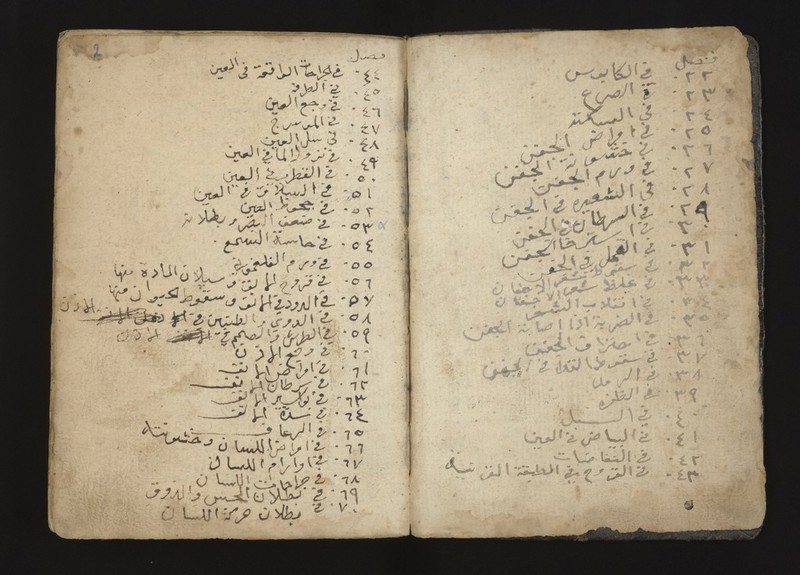 فصل
٢٢ في الكابوس
٢٣ في الصرع
٢٤ في السكتة
٢٥ في امراض الجفن
٢٦ في خشونة الجفن
٢٧ في ورم الجفن
٢٨ في الشعيرة في الجفن
٢٩ في السرطان في الجفن
٣٠ في استرخا الجفن
٣١ في القمل في الجفن
٣٢ في سقوط شعر الاجفان
٣٣ في غلظ الاجفان
في انقلاب الشعر
٣٥ في الضربة اذا اصابة الجفن
٣٦ الجفن
٣٧ في
٣٨ في الرمل
٣٩ في الظفره
٤٠ في السبل
٤١ في البياض في العين
٤٢ في النفاخات
٤٣ في القروح في الطبقة القرنية
2
فصل
٤٤ في الجراحات الواقعة في العين
٤٥ في الطرفة
٤٦ في وجع العين
٤٧ في الموسرج
٤٨ في سل العين
٤٩ في نزول الما في العين
٥٠ في العين
٥١ في السيلان في العين
٥٢ في جحوظ العين
٥٣ في ضعف البصر وبطلانه
٥٤ في حاسة السمع
٥٥ في ورم
٥٦ في قروح الانف وسيلان المادة منها
٥٧ في الدود في الانف وسقوط الحيوان منها
٥٨ في الدوي والطنين في
٥٩ في الطرش والصمم في الاذن
٦٠ في وجع الاذن
٦١ في امراض الانف
٦٢ في سرطان الانف
٦٣ في بواسير الانف
٦٤ في سدة الانف
٦٥ في الرعاف
٦٦ في امراض اللسان وخشونته
٦٧ في اورام اللسان
٦٨ في جراحات اللسان
٦٩ في بطلان الحس والذوق
٧٠ في بطلان حركة اللسان